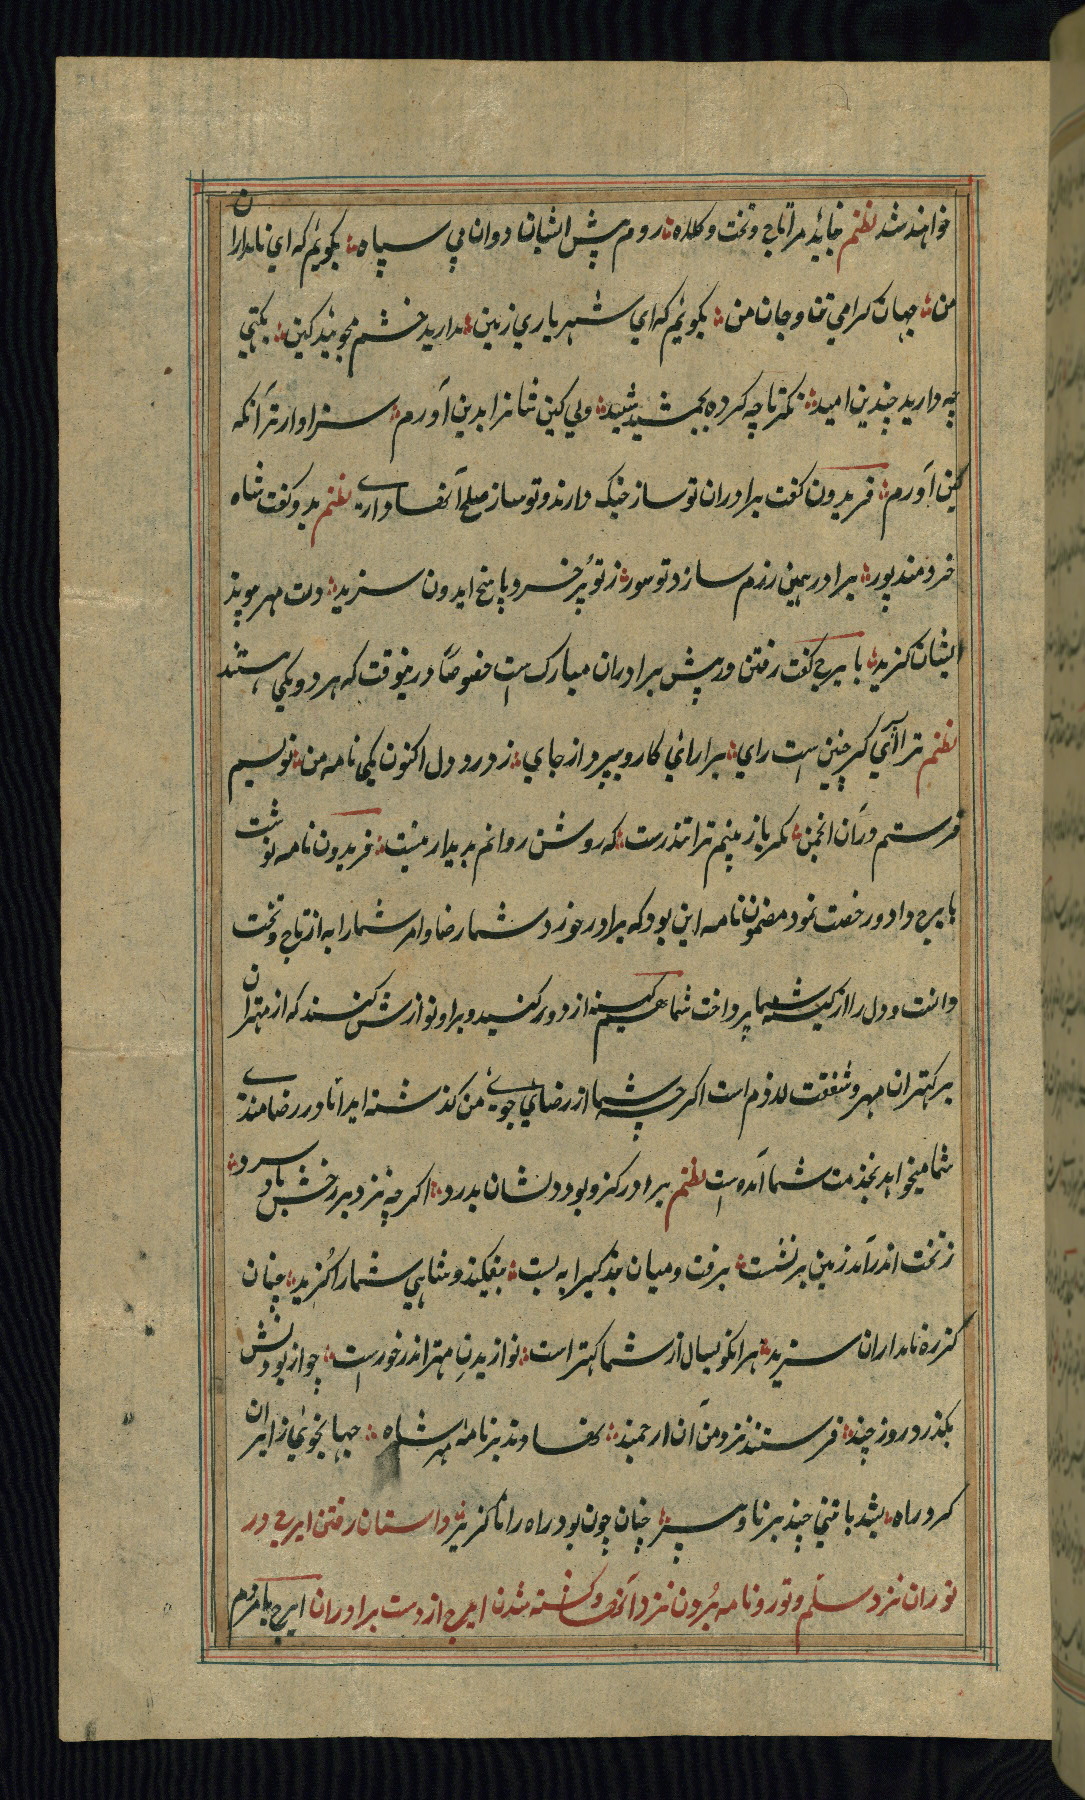 خواهند شد نظم نباید مرا تاج و تخت و کلاه؞ روم پیش ایشان دوان بی سپاه؞ بگویم که ای نامداران
من؞ جهان گرامی تن و جان من؞ بگویم که ای شهریاری زمین؞ مدارید خشم مجویید کین؞ بگیتی
چه دارید چندین امید؞ نگر تا چه کرده بجمشید شید؞ ولی کین شانرا بدین آورم؞ سزاوارتر آنکه
کین آورم؞ فریدون گفت برادران تو ساز جنگ دارند و تو ساز صلح آنها داری نظم بدو گفت شاه
خردمند پور؞ برادر همین رزم سازد تو سور؞ ز تو پر خرد پاسخ ایدون سزید؞ دلت مهر پیوند
ایشان گزید؞ بایرج گفت رفتن در پیش برادران مبارک است خصوصاً درینوقت که هر دو یکی هستند
نظم ترا ای گر چنین است رای؞ برارائی کار و بپرداز جای؞ ز درد دل اکنون یکی نامه من؞ نویسم
فرستم در آن انجمن؞ مگر باز بینم ترا تندرست؞ که روشن روانم بدیدار تست؞ فریدون نامه نوشت
بایرج داد و رخصت نمود مضمون نامه این بود که برادر خورد شما رضا و امر شما را به از تاج و تخت
دانست و دل را از کینه شما پرداخت شما هم کینه از دور کنید و بر او نوازش کنند که از مهتران
بر کهتران مهر و شفقت لازم است اگرچه شما از رضای جوئی من گذشته اید اما او در رضامندی
شما میخواهد بخدمت شما آمده است نظم برادر کزو بود دلشان بدرد؞ اگرچه نزد بر رخش باد سرد؞
ز تخت اندر آمد زمین بر نشست؞ برفت و میان بندگی را به بست؞ بیفکند و شاهی شما را گزید؞ چنان
کز ره نامداران سزید؞ هر انکو بسال از شما کهتر است؞ نوازیدن مهتر اندر خورست؞ چو از بودنش
بگذرد روز چند؞ فرستند نزد من آن ارجمند؞ نهادند بر نامه مهر شاه؞ جهانجوی ز ایران
کرد راه؞ بشد با تنی چند برنا و پیر؞ چنان چون بود راه را ناگزیر؞ داستان رفتن ایرج در
توران نزد سلم و تور و نامه بردن نزد آنها و کشته شدن ایرج از دست برادران ایرج با مردم